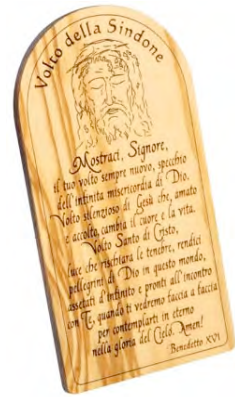 Volto della Sindone
Mostraci, Signore,
il tuo volto sempre nuovo, specchio
dell'infinita misericordia di Dio.
Volto silenzioso di Gesù che, amato
e accolto, cambia il cuore e la vita.
Volto Santo di Cristo,
luce che rischiara le tenebre, rendici
pellegrini di Dio in questo mondo,
assetati d'infinito e pronti all'incontro
con Te, quando ti vedremo faccia a faccia
per contemplarti in eterno
nella gloria del Cielo. Amen!
Benedetto XVI